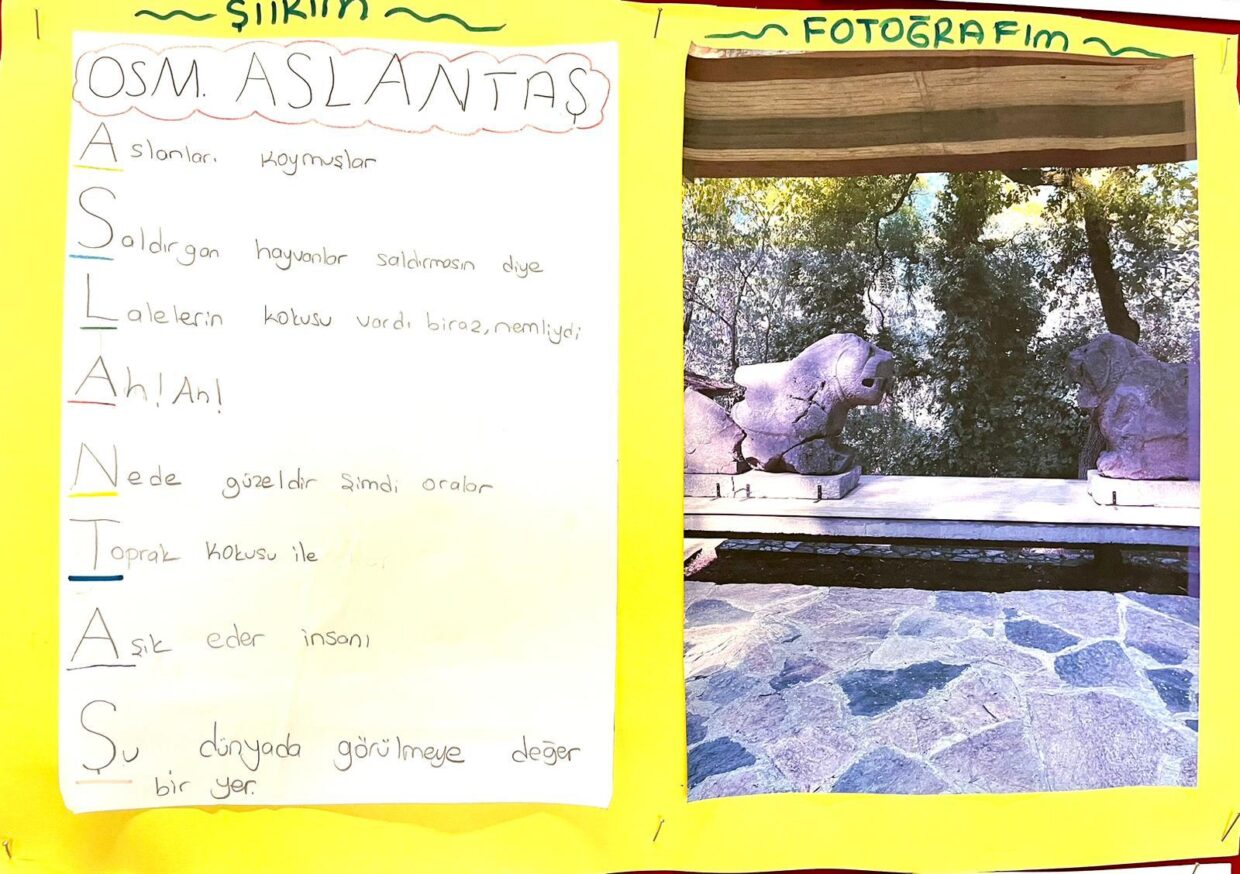 ŞİİRİM
OSM. ASLANTAŞ
Aslanları koymuşlar
Saldırgan hayvanlar saldırmasın diye
Lalelerin kokusu vardı biraz, nemliydi
Ah! Ah!
Nede güzeldir şimdi oralar
Toprak kokusu ile
Aşık eder insanı
Şu dünyada görülmeye değer
bir yer.
FOTOĞRAFIM